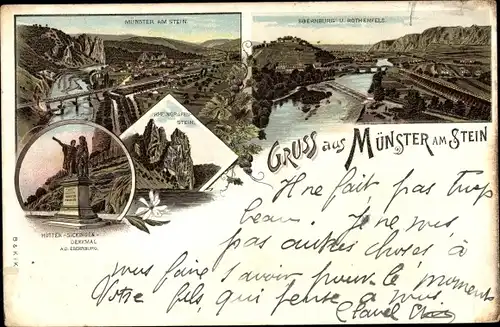 MÜNSTER AM STEIN.
EBERNBURG U. ROTHENFELS.
RHEINGRAFEN-
STEIN.
HUTTEN-SICKINGEN-
DENKMAL
A.D. EBERNBURG.
GRUSS aus MÜNSTER AM STEIN
Il ne fait pas trop
beau. Je ne vois
pas autres choses à
vous faire savoir pour le moment
Votre fils, qui pense à vous.
Pavel